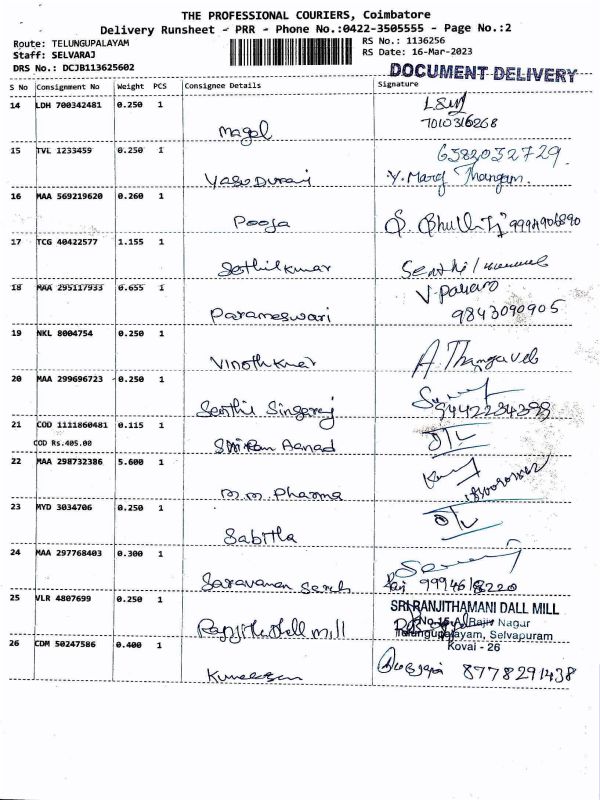 THE PROFESSIONAL COURIERS, Coimbatore
Delivery Runsheet - PRR - Phone No.:0422-3505555 - Page No.:2
Route: TELUNGUPALAYAM
RS No.: 1136256
Staff: SELVARAJ
RS Date: 16-Mar-2023
DRS No.: DCJB113625602
DOCUMENT DELIVERY
S No Consignment No Weight PCS Consignee Details Signature
14 LDH 700342481 0.250 1
Magal 7010316268
15 TVL 1233459 0.250 1 6382032729
Yasodurai Y. Mary Thangam.
16 MAA 569219620 0.260 1
Pooja
17 TCG 40422577 1.155 1
Senthilkumar
18 MAA 295117933 0.655 1
Parameswari 9843090905
19 NKL 8004754 0.250 1
Vinothkumar A. Thangavel
20 MAA 299696723 0.250 1
Senthil Singaraj 9442234398
21 COD 1111860481 0.115 1
COD Rs.405.00 Sriram Aanad
22 MAA 298732386 5.600 1
M.M. Pharma
23 MYD 3034706 0.250 1
Sabitha
24 MAA 297768403 0.300 1
Saravanan
25 VLR 4807699 0.250 1 SRI RANJITHAMANI DALL MILL
No-15-A, Rajiv Nagar
Telungupalayam, Selvapuram
Kovai - 26
26 CDM 50247586 0.400 1
8778291438